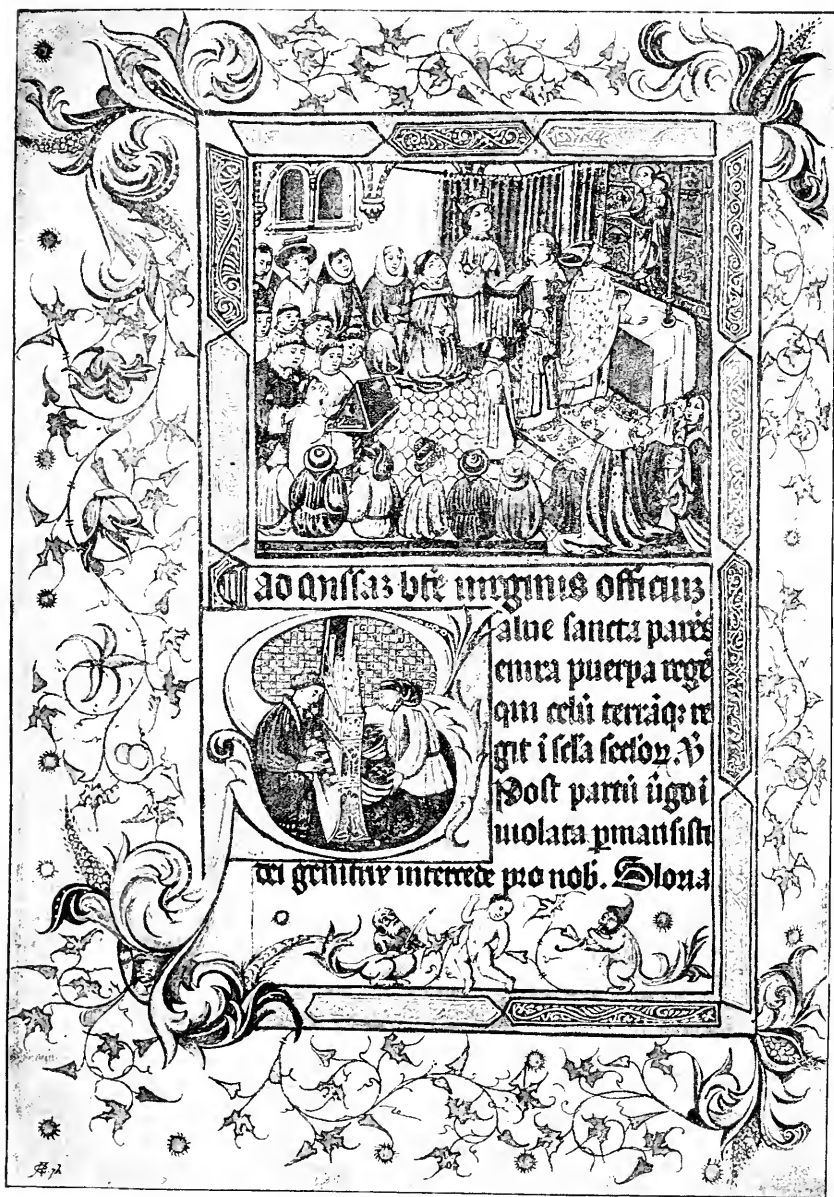 Ad missaz bte uirginis officiuz
Salue sancta parēs
enixa puerpa regē
qui celū terrāqꝫ re
git i scła scłoꝝ. ℣
Post partū ūgo i
uiolata ꝑmansisti
dei genitrix intercede pro nob. Gloria